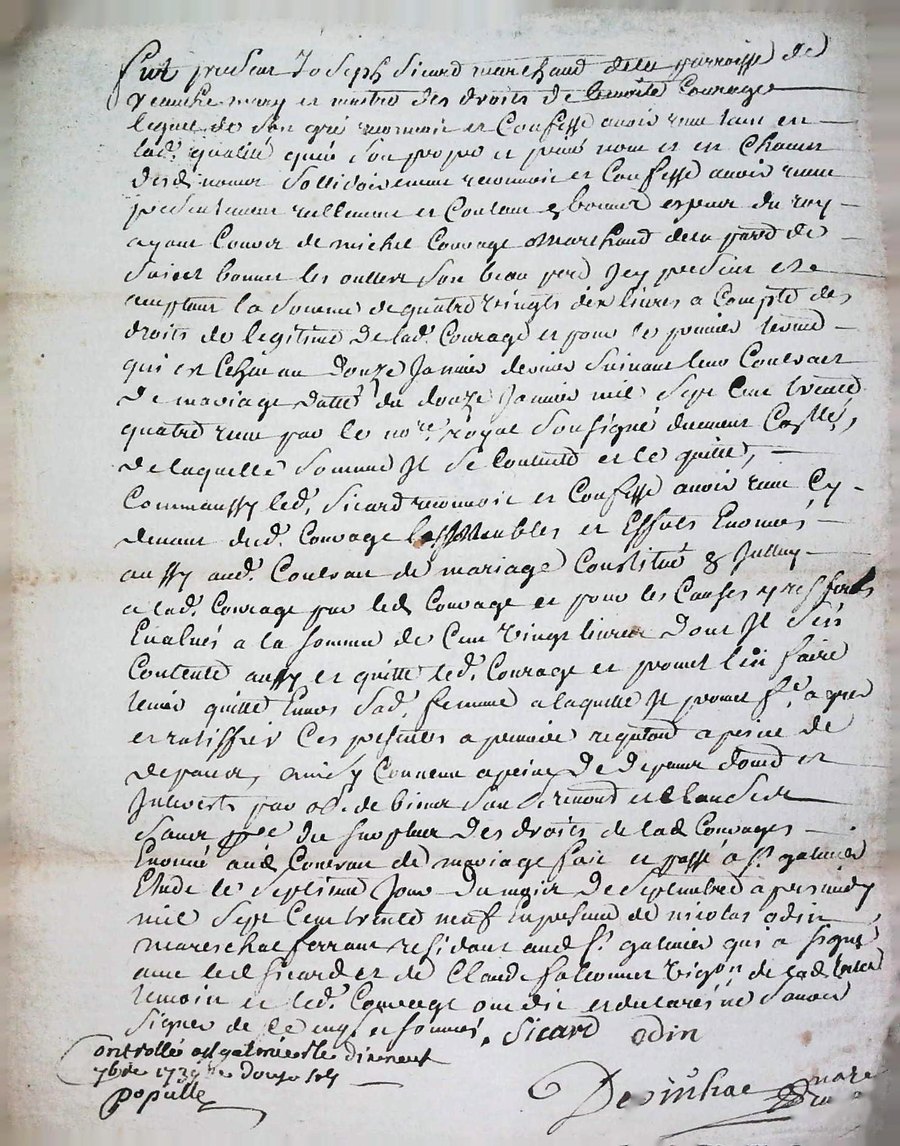 fut present Joseph Sicard marchand dela parroisse de
Veauche mary et maitre des droits de benoite Courage
lequel de son gré reconnoit et Confesse avoir receu tant en
lad. qualité qu'en son propre et privé nom et en Chacun
desdi noms sollidairement reconnoit et Confesse avoir receu
presentement reellement et Contant bonnes especes du roy
ayant Cours de michel Courage Marchand dela parr de
Sainct bonnet les oulles son beau pere Icy present et
acceptant la somme de quatre vingts dix livres a Compte des
droits de legitime de lad. Courage et pour le premier terme
qui est Echu au douze Janvier dernier suivant leur Contract
de mariage datté du douze Janvier mil sept Cent trente
quatre receu par le nore. royal soussigné duement Collé,
de laquelle somme Il se Contente et le quitte,
Comm'aussy led. Sicard reconnoit et Confesse avoir receu Cy
devant dud. Courage les Meubles et Effets Enoncés
aussy aud. Contrat de mariage Constitué &
a lad. Courage par led. Courage et pour les Causes y
Evalués a la somme de Cent vingt livres dont Il s'en
Contente aussy et quitte led. Courage et promet l'en faire
tenir quitte Envers sad. femme a laquelle Il promet fe. agreer
et ratiffier Ces presentes a premiere requisition a peine de
depans, ainsy Convenu a peine de depans domd et
Interests par ob. de biens
du surplus des droits de lad Courage
Enoncé aud Contrat de mariage fait et passé a St. galmier
Etude le septieme Jour du mois de septembre apres midy
mil sept Cent trente neuf En presence de nicolas odin
mareschal ferrant residant aud St. galmier qui a signé
avec led Sicard et de Claude falconnet vigon de lad
temoin et led. Courage ont dit et declaré ne scavoir
signer de Ce enq. et sommés. Sicard odin
Controllé a st galmier le dixneuf
7bre 1739 re douze sols
populle